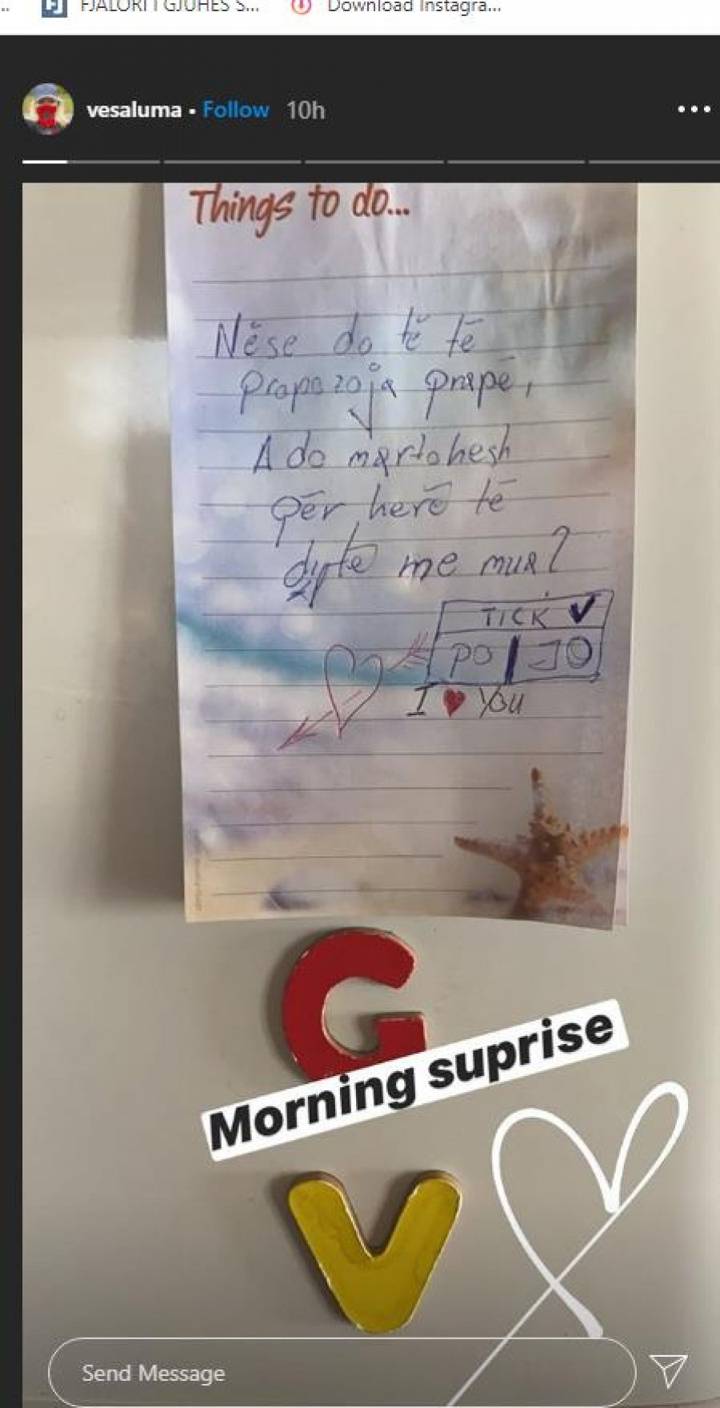 FJALORI I GJUHES S...
Download Instagra...
vesaluma • Follow 10h
Things to do...
Nëse do të të
propozoja prapë,
A do martohesh
për herë të
dytë me mua?
TICK ✓
PO | JO
I ♥ You
G
Morning suprise
V
Send Message